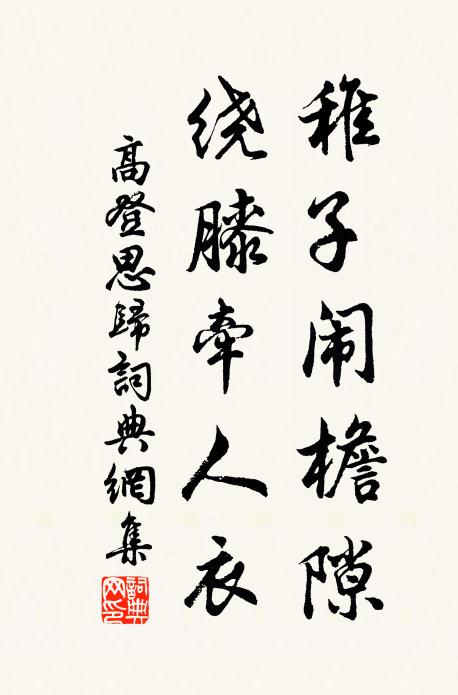 稚子闹檐隙
绕膝牵人衣
高登思歸詞典網集
詞典网印